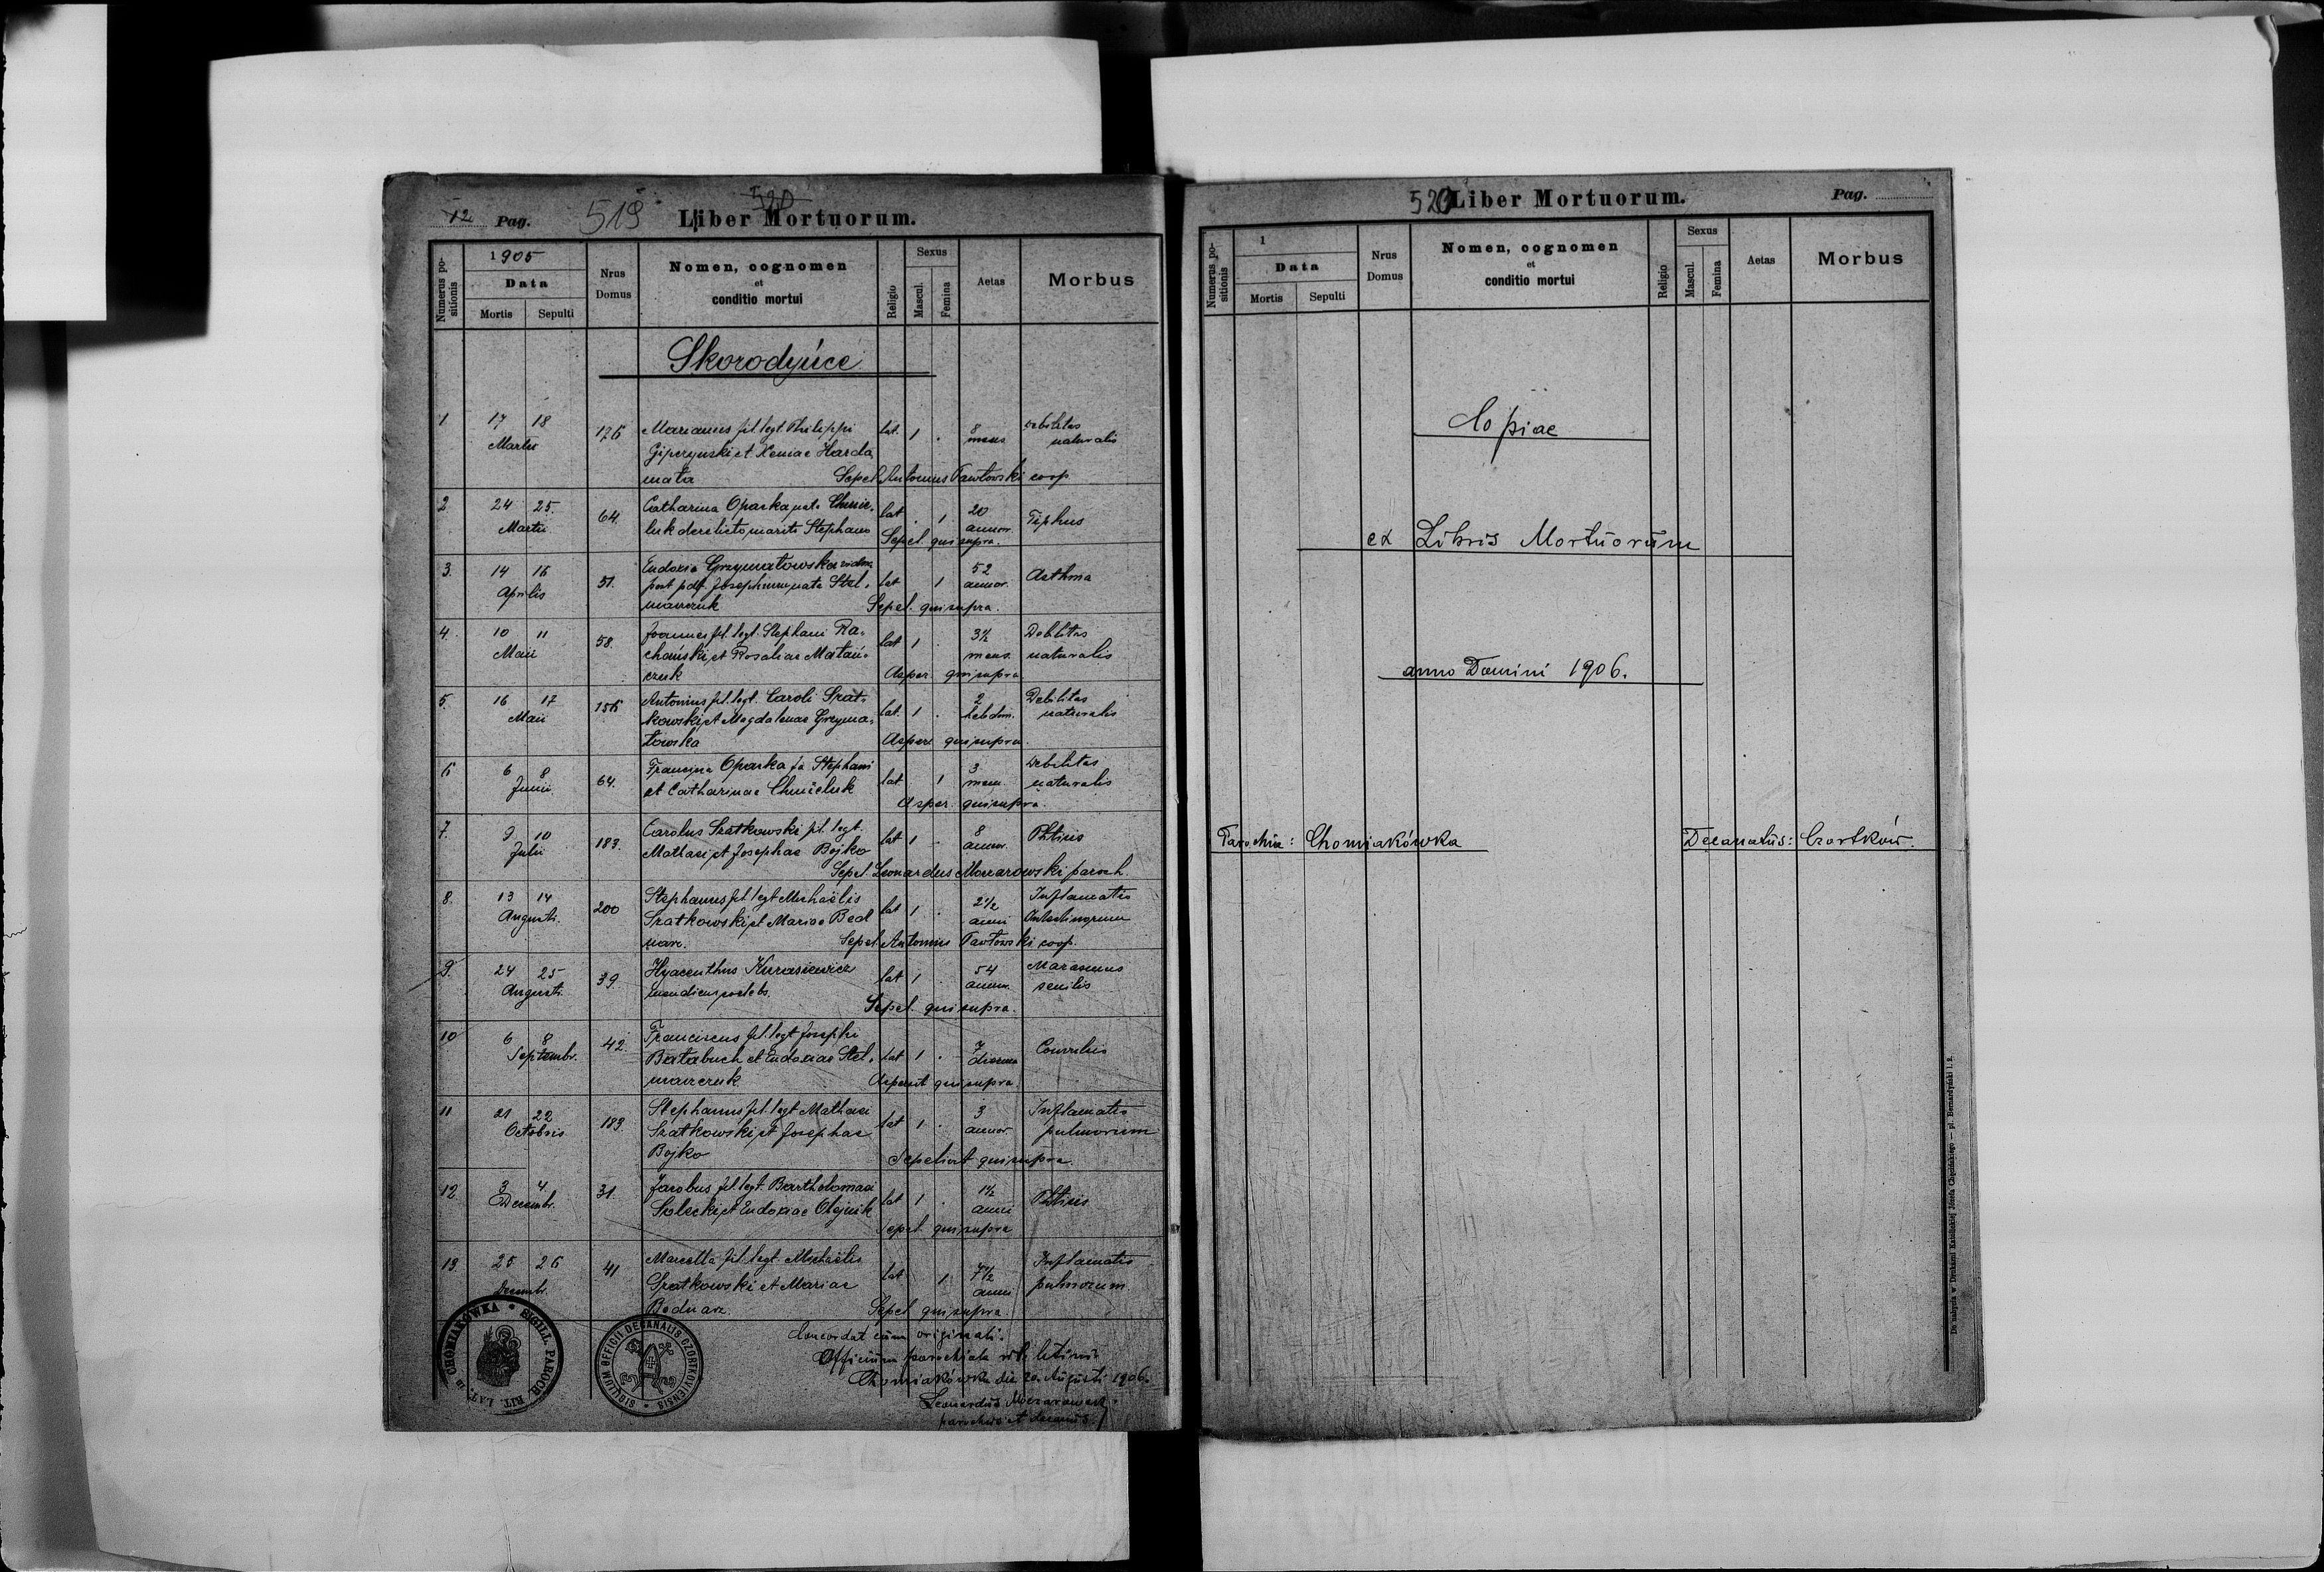 12 Pag. 519 520 Liber Mortuorum.
Numerus positionis
1905
Data
Mortis Sepulti
Nrus Domus
Nomen, cognomen
et
conditio mortui
Religio
Sexus
Mascul. Femina
Aetas
Morbus
Skorodyńce
1 17 18 Martii 176 Marianus fil. legt. Philippi lat. 1 . 8 mens debilitas naturalis
Giperynski et Xeniae Harda
mata Sepel. Antonius Pawłowski coop
2 24 25. Martii 64. Catharina Oparka nata Chmie- lat . 1 20 annor. Tiphus
luk derelicto marito Stephano Sepel. qui supra.
3. 14 16 Aprilis 51. Eudoxia Grzymałowska vidua
post pdf. Josephum nata Stel- lat 1 52 annor. Asthma
maszczuk Sepel. qui supra.
4. 10 11 Maii 58. Joannes fil. legt. Stephani Ra- lat 1 3½ mens. Debilitas naturalis
chański et Rosaliae Matań-
czuk Asper. qui supra
5. 16 17 Maii 156 Antonius fil. legt. Caroli Szat- lat. 1 . 2 hebdm. Debilitas naturalis
kowski et Magdalenae Grzyma-
łowska Asper. qui supra.
6 6 8 Junii. 64. Francisca Oparka fa Stephani lat 1 3 mens. Debilitas naturalis
et Catharinae Chmieluk
Asper. qui supra.
7. 9 10 Julii 183. Carolus Szatkowski fil. legt. lat 1 . 8 annor. Phtisis
Mathaei et Josephae Bojko
Sepel. Leonardus Moczarowski paroch.
8. 13 14 Augusti. 200 Stephanus fil. legt Michaëlis lat 1 . 2½ anni Inflamatio
Szatkowski et Mariae Bed
narz. Sepel. Antonius Pawłowski coop.
9. 24 25 Augusti. 39. Hyacenthus Kurasiewicz lat 1 54 annor. Marasmus senilis
mendicus coelebs.
Sepel. qui supra.
10 6 8 Septembr. 42. Franciscus fil. legt Josephi
Bałabuch et Eudoxiae Stel- lat 1 . 7 dierum
maszczuk Aspersit qui supra.
11 21 22 Octobris 183. Stephanus fil. legt Mathaei lat 1 . 3 annor. Inflamatio pulmorum
Szatkowski et Josephae
Bojko Sepelivit qui supra.
12. 3 4. Decembr. 31. Jacobus fil. legt. Bartholomaei
et Eudoxiae Olejnik lat 1 . 1½ anni Phtisis
Sepel. qui supra
13. 25 26 Decembr. 41 Marcella fil. legt. Michaëlis
Szatkowski et Mariae lat 1 7½ anni Inflamatio pulmorum
Bednarz. Sepel. qui supra
Concordat cum originali.
Officium parochiale rit. latini
Chomiakówka die 20. Augusti 1906.
Leonardus Moczarowski
parochus et decanus
SIGILL. PAROCH. RIT. LAT. in CHOMIAKÓWKA
SIGILLUM OFFICII DECANALIS CZORTKOVIENSIS
520 Liber Mortuorum. Pag.
Numerus positionis
1
Data
Mortis Sepulti
Nrus Domus
Nomen, cognomen
et
conditio mortui
Religio
Sexus
Mascul. Femina
Aetas
Morbus
Copiae
ex Libris Mortuorum
anno Domini 1906.
Parochia: Chomiakówka Decanatus: Czortków.
Do nabycia w Drukarni Katolickiej Józefa Chęcińskiego — pl. Bernardyński l. 2.